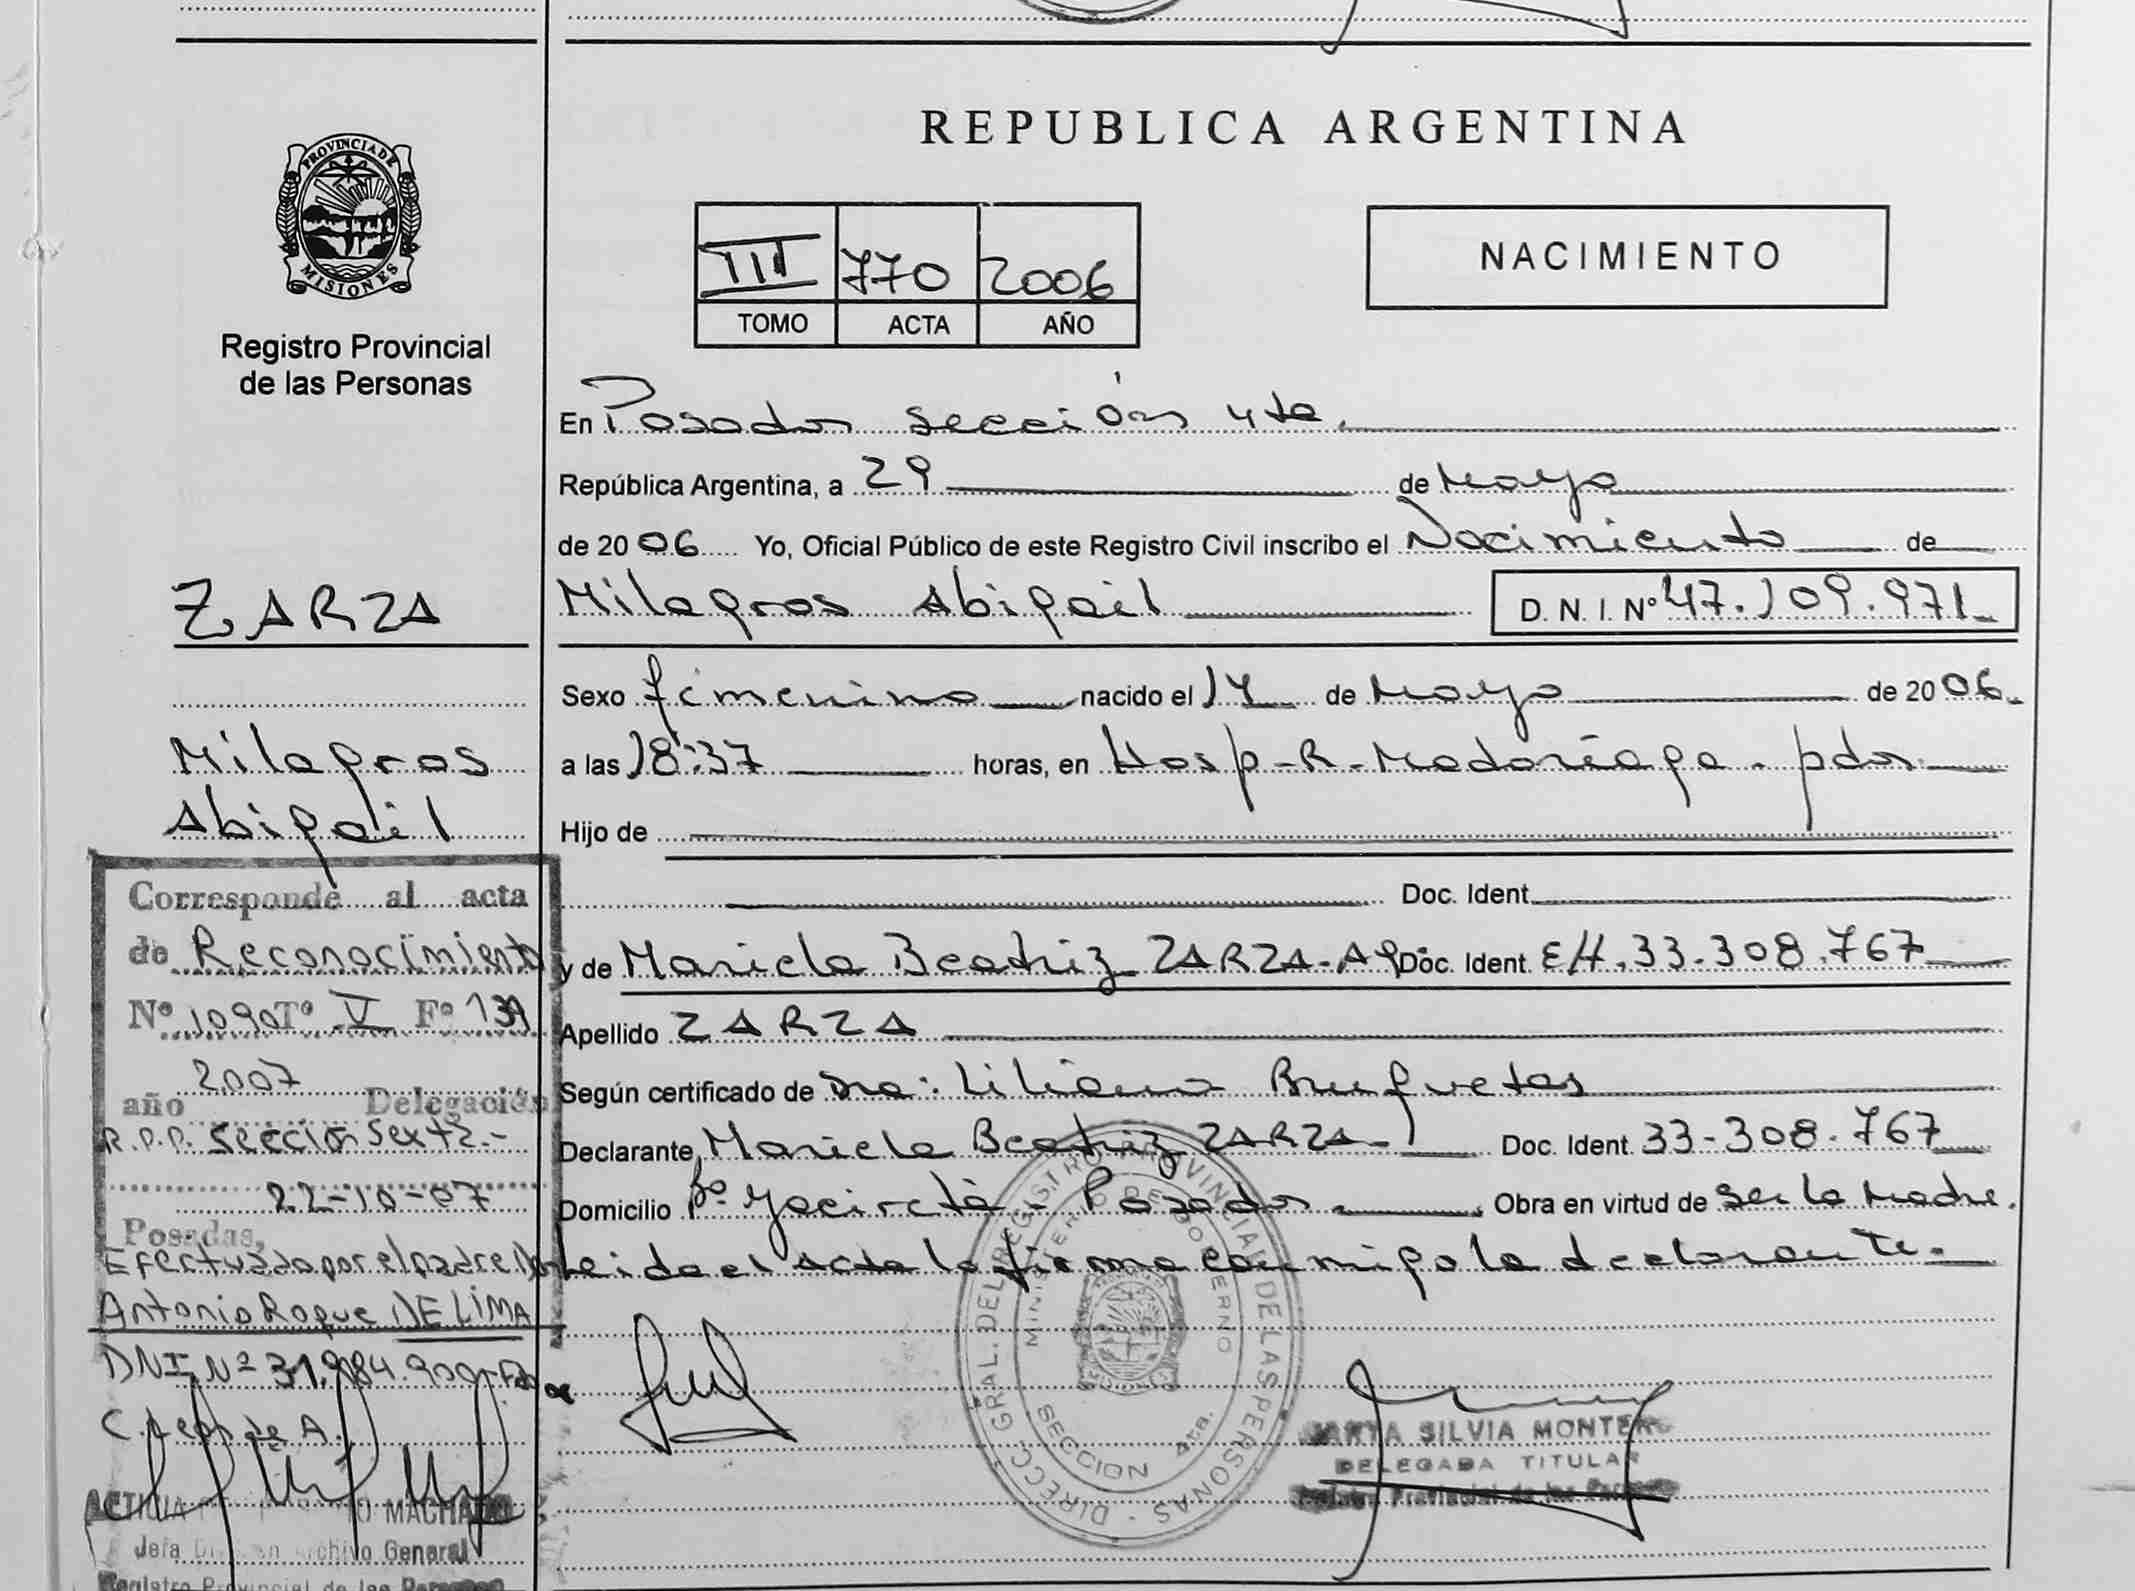 REPUBLICA ARGENTINA
PROVINCIA DE
MISIONES
Registro Provincial
de las Personas
III 770 2006
TOMO ACTA AÑO
NACIMIENTO
En Posadas sección 4ta.
República Argentina, a 29 de Mayo
de 2006 Yo, Oficial Público de este Registro Civil inscribo el Nacimiento de
Milagros Abigail D. N. I. Nº 47.109.971
Sexo femenino nacido el 14 de Mayo de 2006.
a las 18:37 horas, en Hosp-R-Madariaga. pdas
Hijo de
Doc. Ident.
y de Mariela Beatriz ZARZA-Ag Doc. Ident. EH.33-308.767
Apellido ZARZA
Según certificado de Dra: Liliana
Declarante Mariela Beatriz ZARZA- Doc. Ident. 33-308.767
Domicilio Bº Yacireta- Posadas Obra en virtud de Ser la Madre.
Leida el acta la firma conmigo la declarante.-
ZARZA
Milagros
Abigail
Corresponde al acta
de Reconocimiento
Nº 1090 Tº V Fº 139
2007
año Delegación
R.P.P. Sección Sexta.-
22-10-07
Posadas,
Efectuado por el padre
Antonio Roque DE LIMA
DNI. Nº 31.984.900-
C. Leos de A.
MACHADO
Jefa División Archivo General
Registro Provincial de las Personas
DIRECC. GRAL. DEL REGISTRO PROVINCIAL DE LAS PERSONAS
MINISTERIO DE GOBIERNO
SECCION 4ta.
MARTA SILVIA MONTERO
DELEGADA TITULAR
Registro Provincial de las Personas